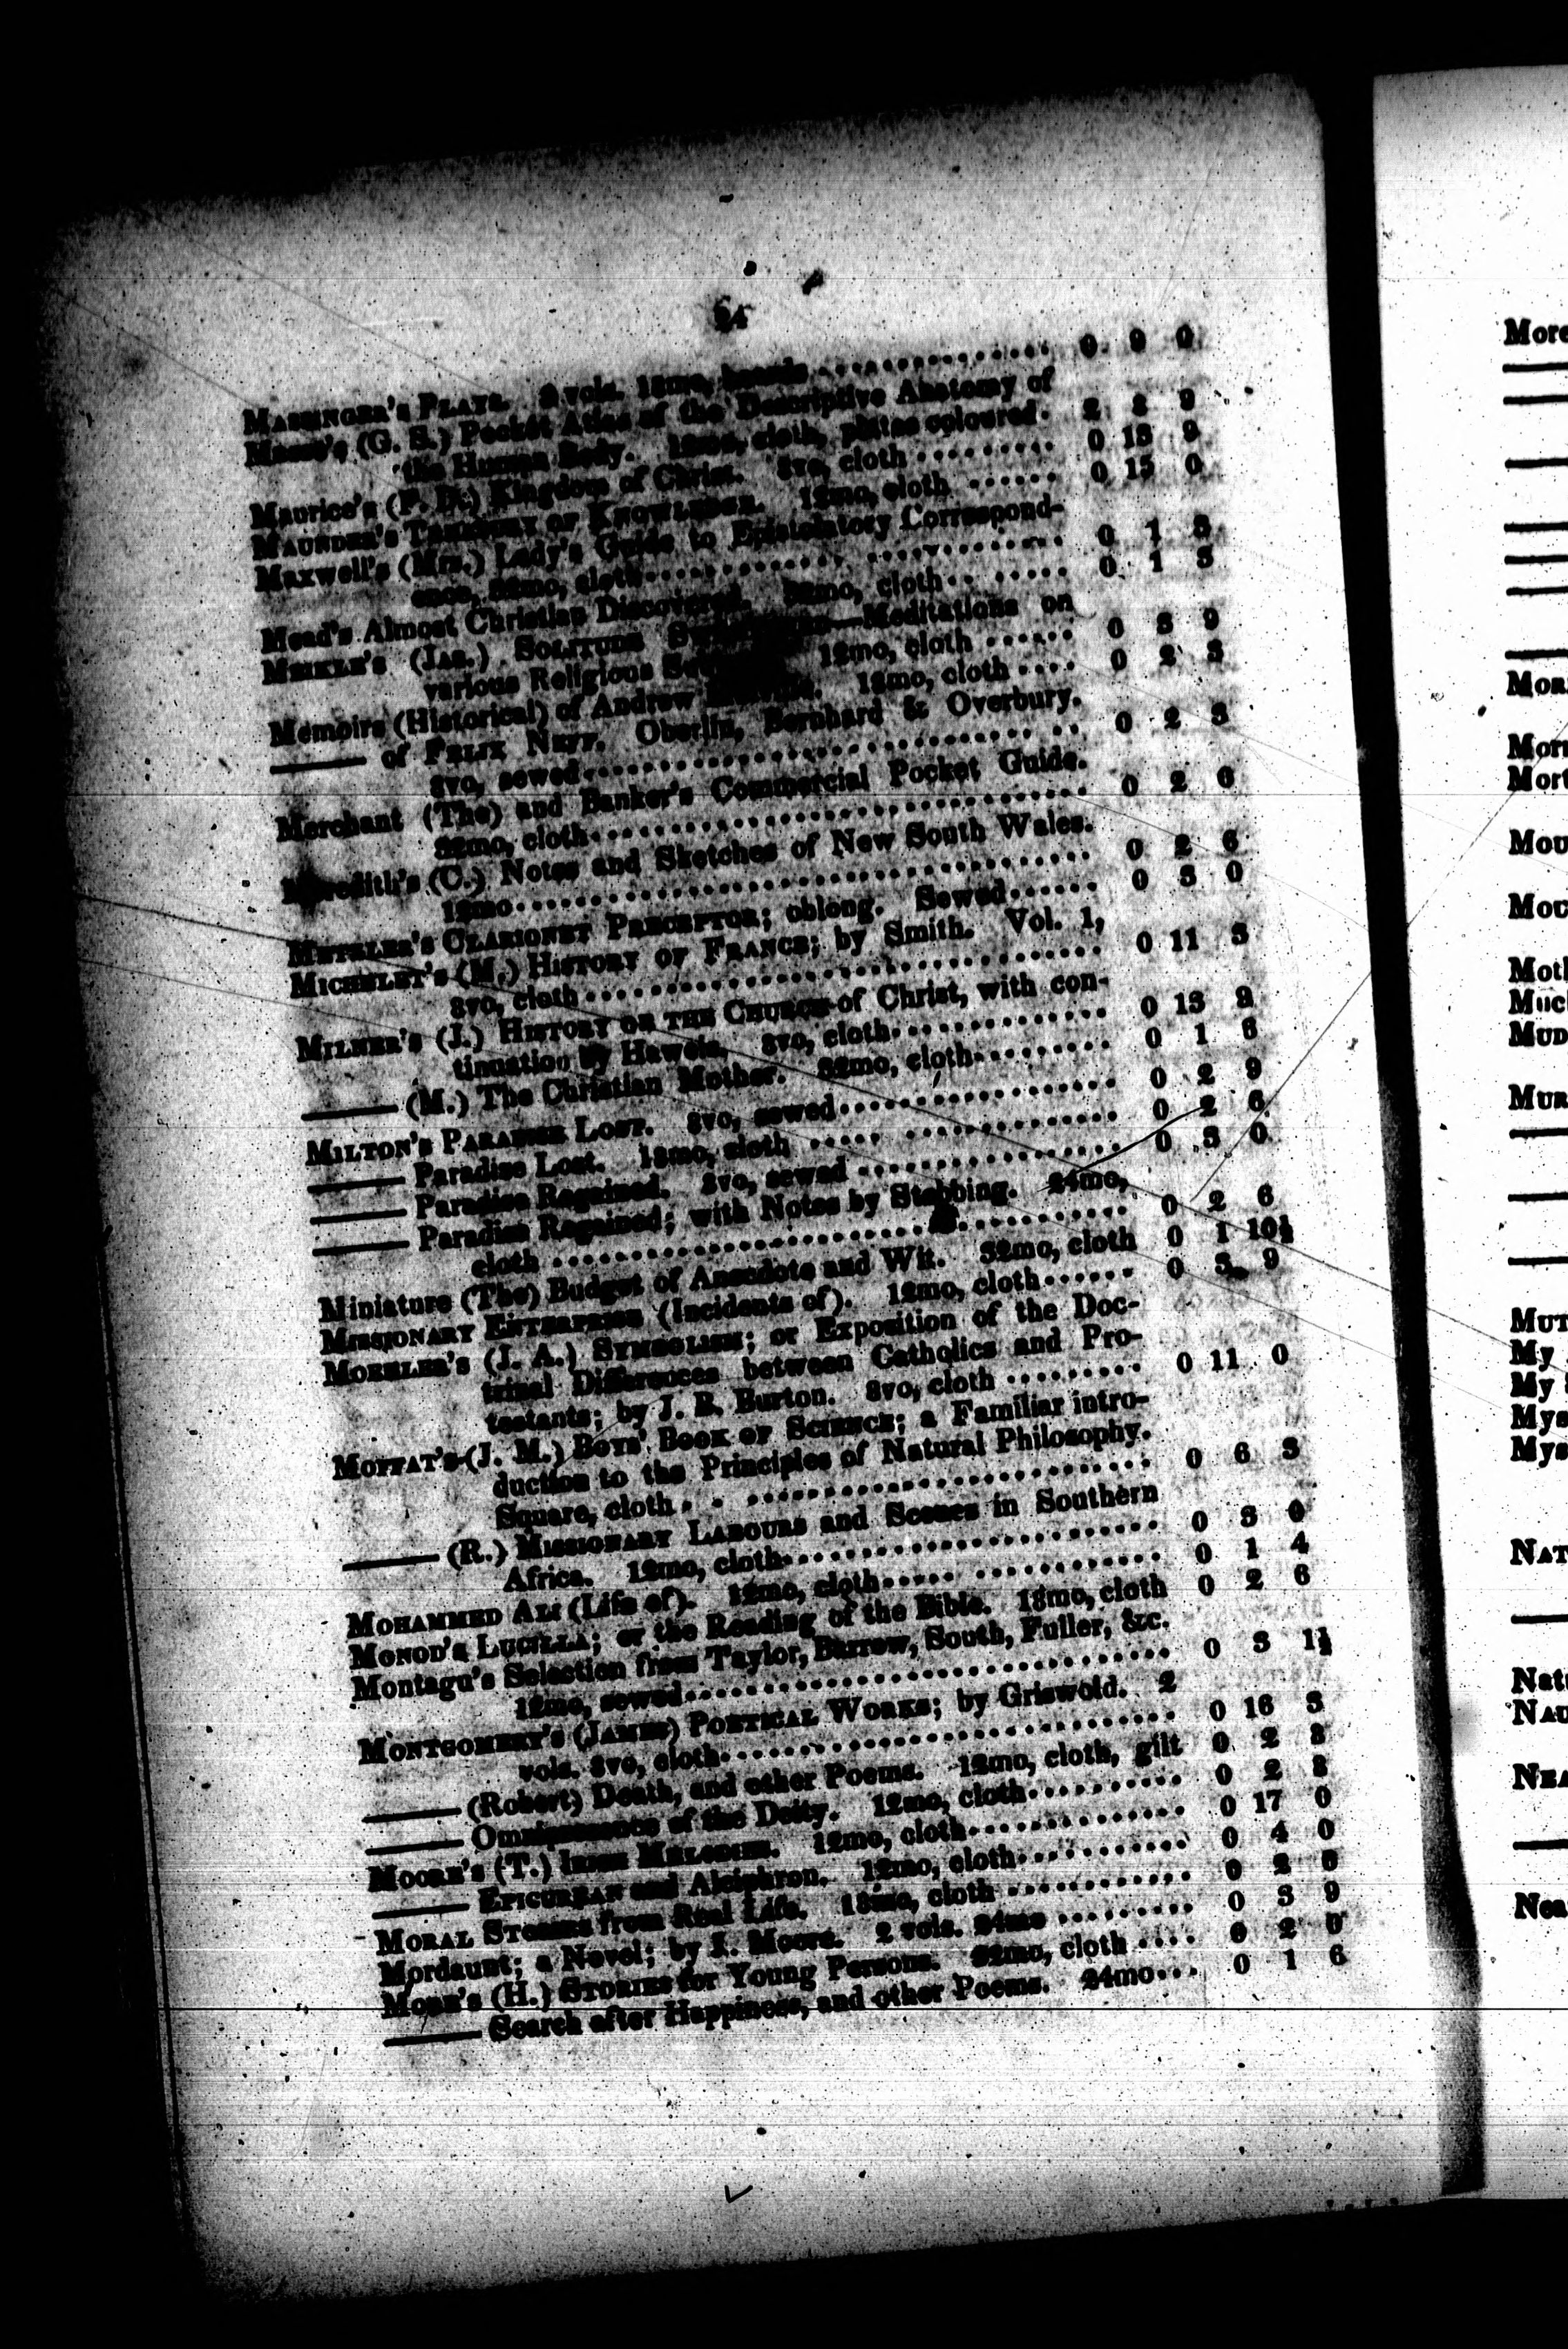 24
MASSINGER'S PLAYS. vols. 18mo, 0 9 0
(G. S.) Pocket Atlas of the Descriptive Anatomy of
the Human Body. 12mo, cloth, plates coloured. 2 2 9
Maurice's (F. D.) Kingdom of Christ. 8vo, cloth 0 13 9
MAUNDER'S TREASURY OF KNOWLEDGE. 12mo, cloth 0 15 0
Maxwell's (Mrs.) Lady's Guide to Epistolatory Correspond-
ence. 32mo, cloth 0 1 3
Mead's Almost Christian Discovered. 32mo, cloth 0 1 3
MEIKLE'S (JAS.) SOLITUDE —Meditations on
various Religious 12mo, cloth 0 3 9
Memoirs (Historical) of Andrew 18mo, cloth 0 2 3
—— of FELIX NEFF. Oberlin, Bernhard & Overbury.
8vo, sewed 0 2 3
Merchant (The) and Banker's Commercial Pocket Guide.
32mo, cloth 0 2 6
Meredith's (C.) Notes and Sketches of New South Wales.
12mo 0 2 6
CLARIONET PRECEPTOR; oblong. Sewed 0 3 0
MICHELET'S (M.) HISTORY OF FRANCE; by Smith. Vol. 1,
8vo, cloth 0 11 3
MILNER'S (J.) HISTORY OF THE CHURCH of Christ, with con-
tinuation by Haweis. 8vo, cloth 0 13 9
—— (M.) The Christian Mother. 32mo, cloth 0 1 6
MILTON'S PARADISE LOST. 8vo, sewed 0 2 9
—— Paradise Lost. 18mo, cloth 0 2 6
—— Paradise Regained. 8vo, sewed 0 3 0
—— Paradise Regained; with Notes by Stebbing. 24mo,
cloth 0 2 6
Miniature (The) Budget of Anecdote and Wit. 32mo, cloth 0 1 10½
MISSIONARY ENTERPRISE (Incidents of). 12mo, cloth 0 3 9
MOEHLER'S (J. A.) SYMBOLISM; or Exposition of the Doc-
trinal Differences between Catholics and Pro-
testants; by J. B. Burton. 8vo, cloth 0 11 0
MOFFAT'S (J. M.) BOYS' BOOK OF SCIENCE; a Familiar intro-
duction to the Principles of Natural Philosophy.
Square, cloth 0 6 3
—— (R.) MISSIONARY LABOURS and Scenes in Southern
Africa. 12mo, cloth 0 3 0
MOHAMMED ALI (Life of). 12mo, cloth 0 1 4
MONOD'S LUCILLA; or the Reading of the Bible. 18mo, cloth 0 2 6
Montagu's Selection from Taylor, Barrow, South, Fuller, &c.
12mo, sewed 0 3 1½
MONTGOMERY'S (JAMES) POETICAL WORKS; by Griswold. 2
vols. 8vo, cloth 0 16 3
—— (Robert) Death, and other Poems. 12mo, cloth, gilt 0 2 8
—— Omnipresence of the Deity. 12mo, cloth 0 2 8
MOORE'S (T.) IRISH MELODIES. 12mo, cloth 0 17 0
—— EPICUREAN and Alciphron. 12mo, cloth 0 4 0
MORAL STORIES from Real Life. 18mo, cloth 0 2
Mordaunt; a Novel; by J. Moore. 2 vols. 24mo 0 3 9
MORE'S (H.) STORIES for Young Persons. 32mo, cloth 0 2 0
—— Search after Happiness, and other Poems. 24mo 0 1 6
More
MOU
MUD
MUR
MUT
My
My
Mys
Mys
NAT
NAU
NEA
Nea